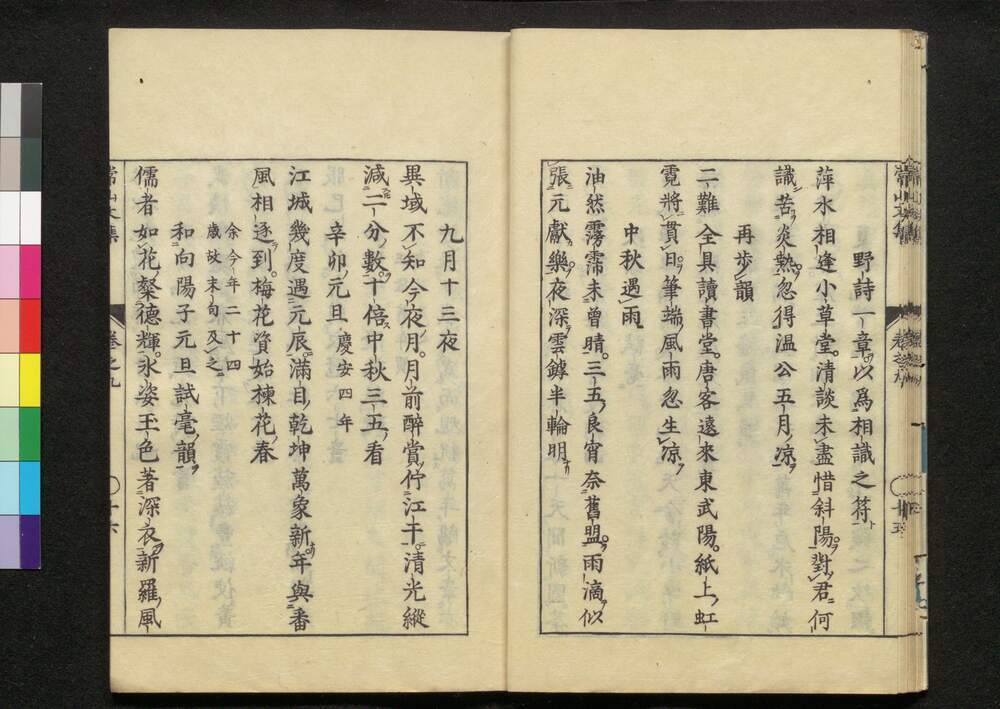 野詩一章以爲相識之符
萍水相逢小草堂清談未盡惜斜陽對君何
識苦炎熱忽得温公五月凉
再歩韻
二難全具讀書堂唐客遠來東武陽紙上虹
霓將貫日筆端風雨忽生凉
中秋遇雨
油然霧霈未曾晴三五良宵奈舊盟雨滴似
張元獻樂夜深雲罅半輪明
常山文集
卷之九
九月十三夜
異域不知今夜月月前醉賞佇江干清光縱
減二分數十倍中秋三五看
辛卯元旦 慶安四年
江城幾度遇元辰滿目乾坤萬象新年與番
風相逐到梅花資始楝花春
余今年二十四
歳故末句及之
和向陽子元旦試毫韻
儒者如花粲德輝氷姿玉色著深衣新羅風
常山文集
卷之九
十六